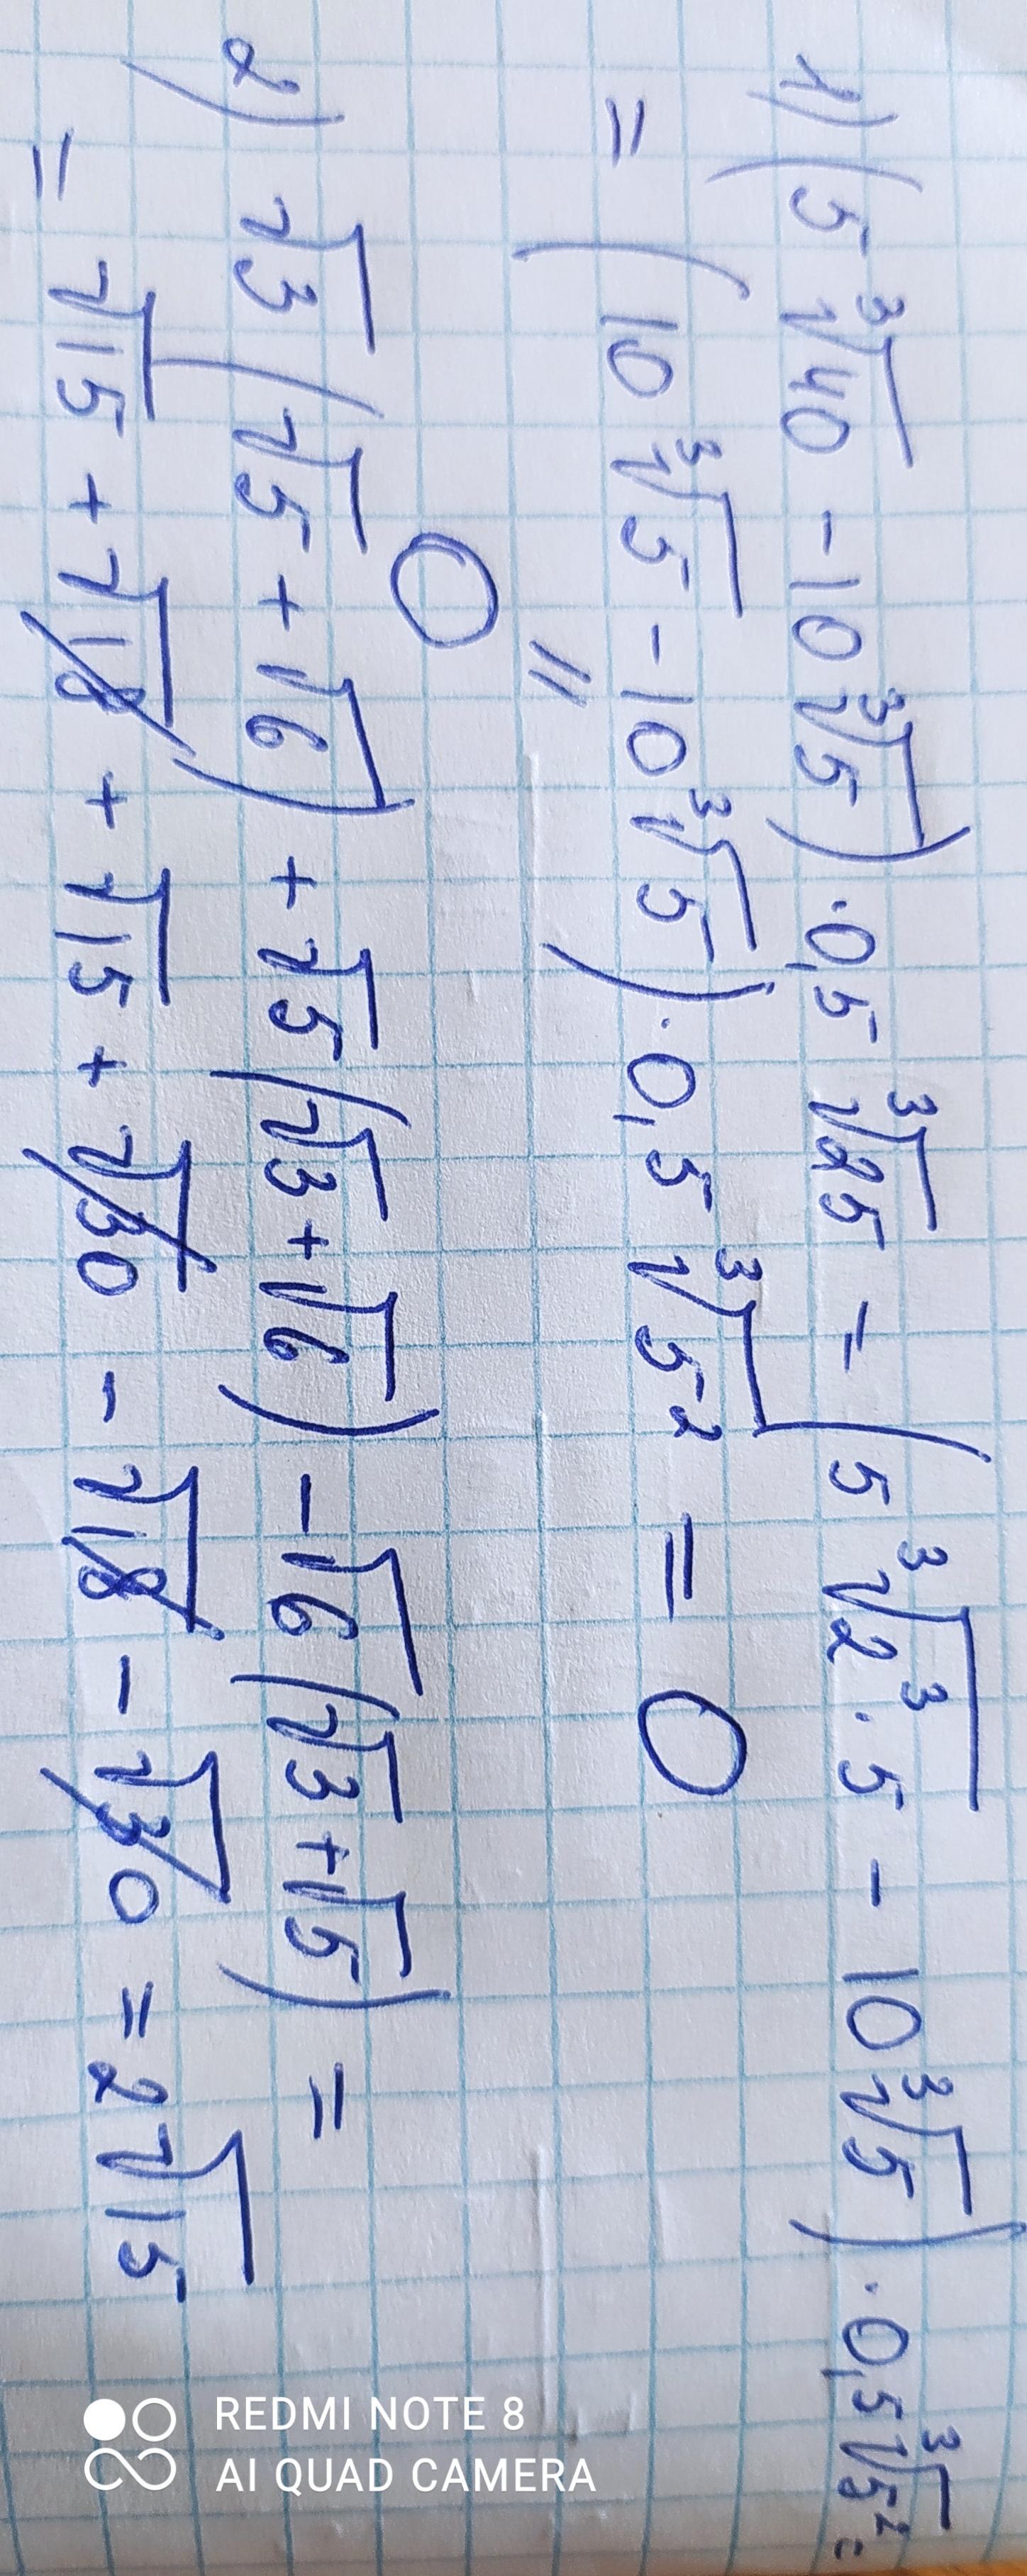 1) (5∛40 - 10∛5) · 0,5∛25 = (5∛(2³·5) - 10∛5) · 0,5∛5² =
= (10∛5 - 10∛5) · 0,5∛5² = 0
"
0
2) √3(√5 + √6) + √5(√3 + √6) - √6(√3 + √5) =
= √15 + √18 + √15 + √30 - √18 - √30 = 2√15
REDMI NOTE 8
AI QUAD CAMERA